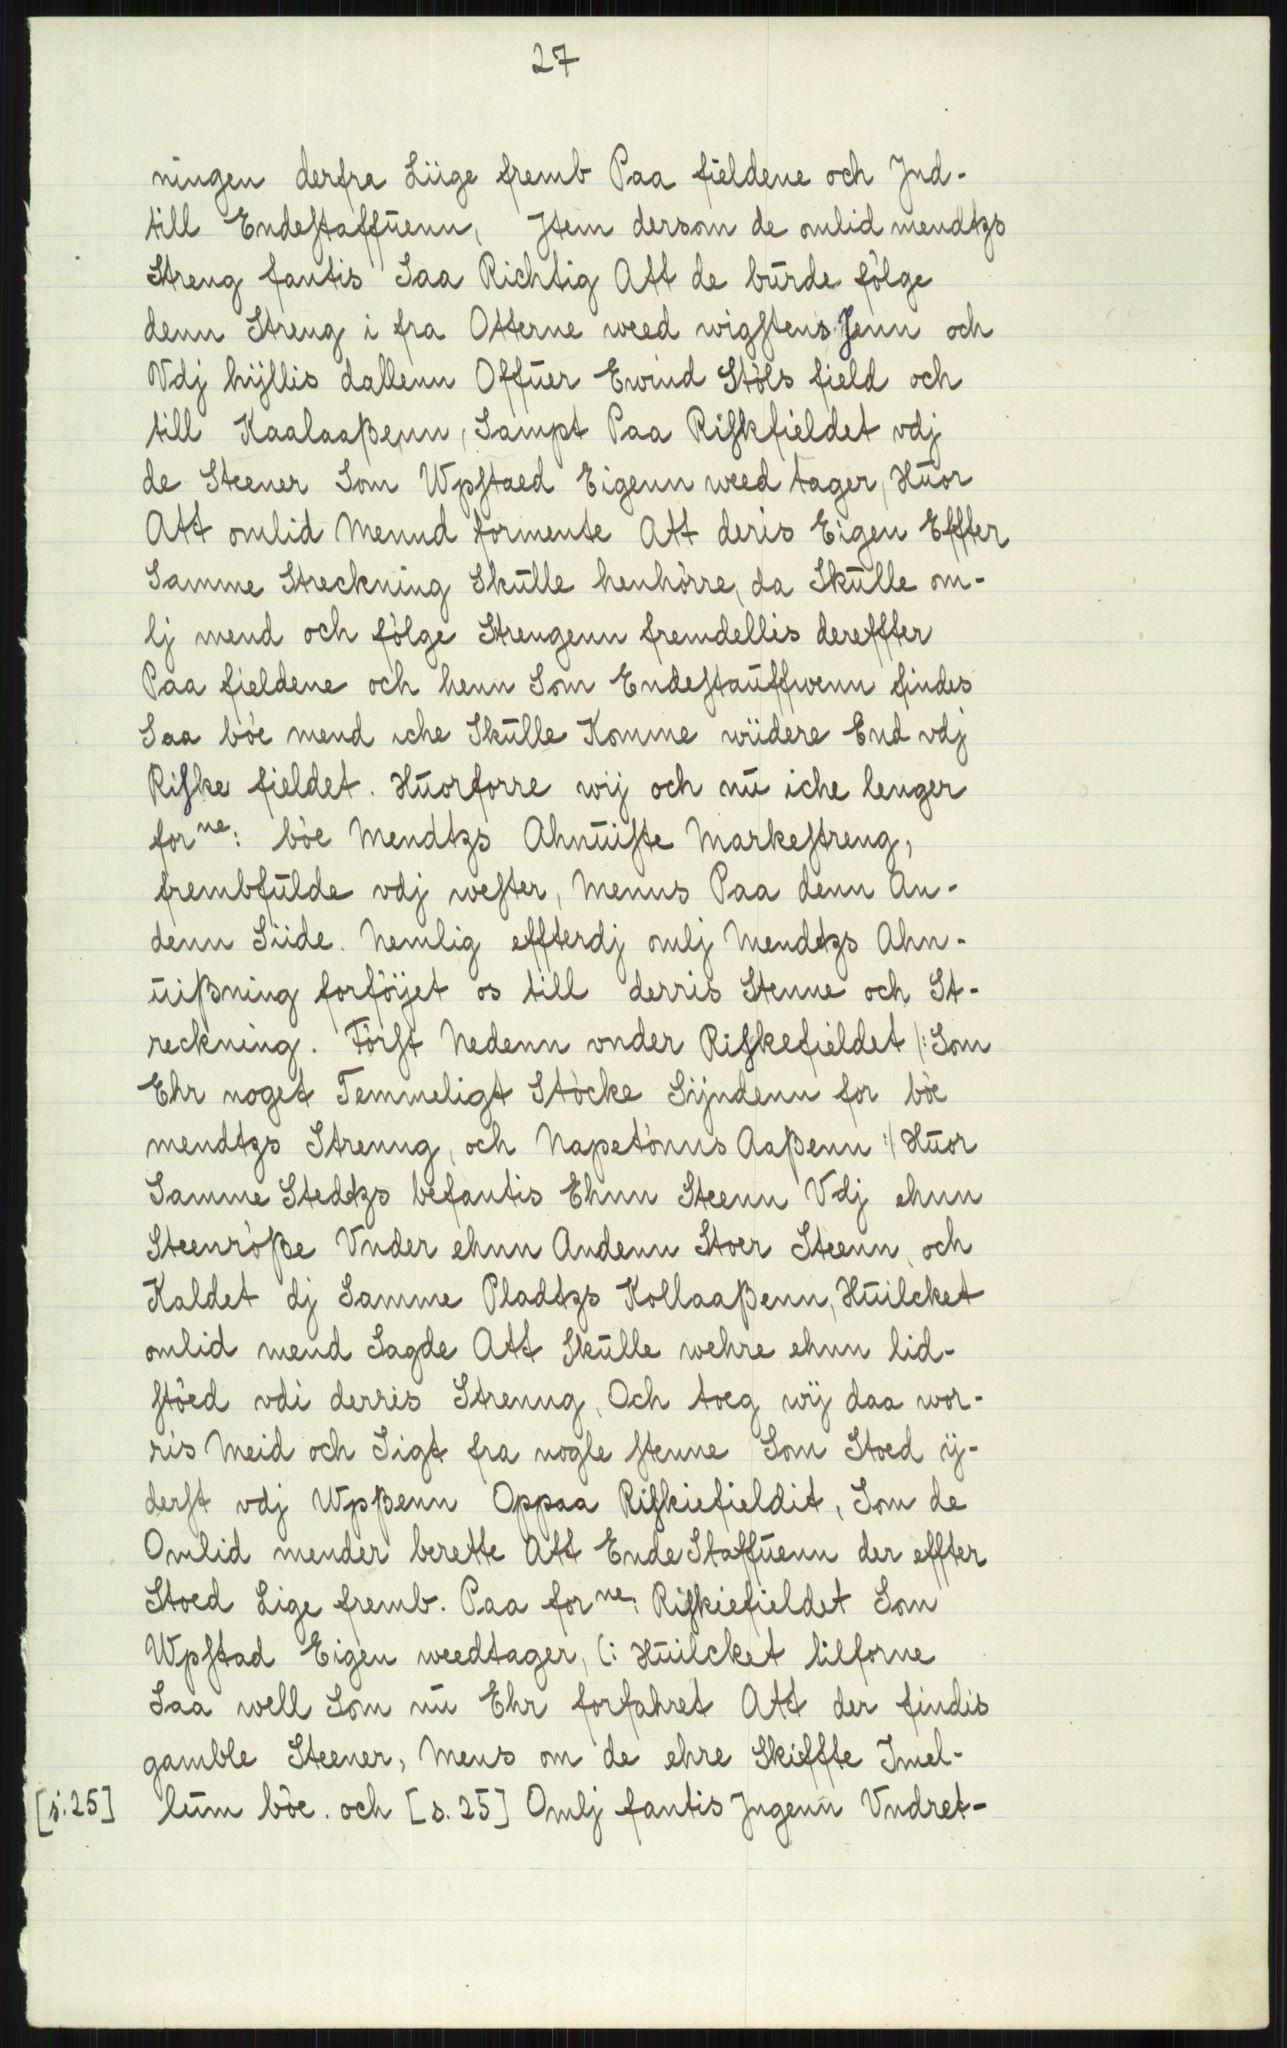 27
ningen derfra Liige fremb Paa fieldene och Jnd-
till Endestaffuenn, Jtem dersom de omlid mendtzs
Streng fantis Saa Richtig Att de burde følge
denn Streng i fra Otterne weed wigstens Jenn och
Vdj hÿllis dallenn Offuer Ewind Støls field och
till Kaalaaßenn, Sampt Paa Riskfieldet vdj
de Steener Som Wpstaed Eigenn weed tager, Huor
Att omlid Mennd formente Att deris Eigen Effter
Samme Streckning Skulle henhørre, da Skulle om-
lj mend och følge Strengenn fremdellis dereffter
Paa fieldene och henn Som Endestauffwenn findes
Saa bøe mend iche Skulle Komme wiidere End vdj
Riske fieldet. Huorforre wij och nu iche lenger
forne: bøe Mendtzs Ahnuiste Markestreng,
frembfulde vdj wester, Menns Paa denn An-
denn Siide. Nemlig effterdj omlj Mendtzs Ahn-
uißning forføÿet os till derris Stenne och St-
reckning. Først Nedenn vnder Riskefieldet /:Som
Ehr noget Temmeligt Støcke Sÿndenn for bøe
mendtzs Strenng, och Napetønns Aaßenn :/ Huor
Samme Stedtzs befantis Ehnn Steenn Vdj ehnn
Steenrøße Vnder ehnn Andenn Stoer Steenn, och
Kaldet dj Samme Pladtzs Kollaaßenn, Huilcket
omlid mend Sagde Att Skulle wehre ehnn lid-
støed vdi derris Strenng, Och toeg wÿ daa wor-
ris Meid och Sigt fra nogle stenne Som Stoed ÿ-
derst vdj Wpßenn Oppaa Riskiefieldit, Som de
Omlid mender berette Att Ende Staffuenn der effter
Stoed Lige fremb. Paa forne: Riskiefieldet Som
Wpstad Eigen weedtager, (: Huilcket tilforne
Saa well Som nu Ehr forfahret Att der findis
gamble Steener, Mens om de ehre Skiffte Jmel-
[s. 25] lum bøe. och [s. 25] Omlj fantis Jngenn Vndret-